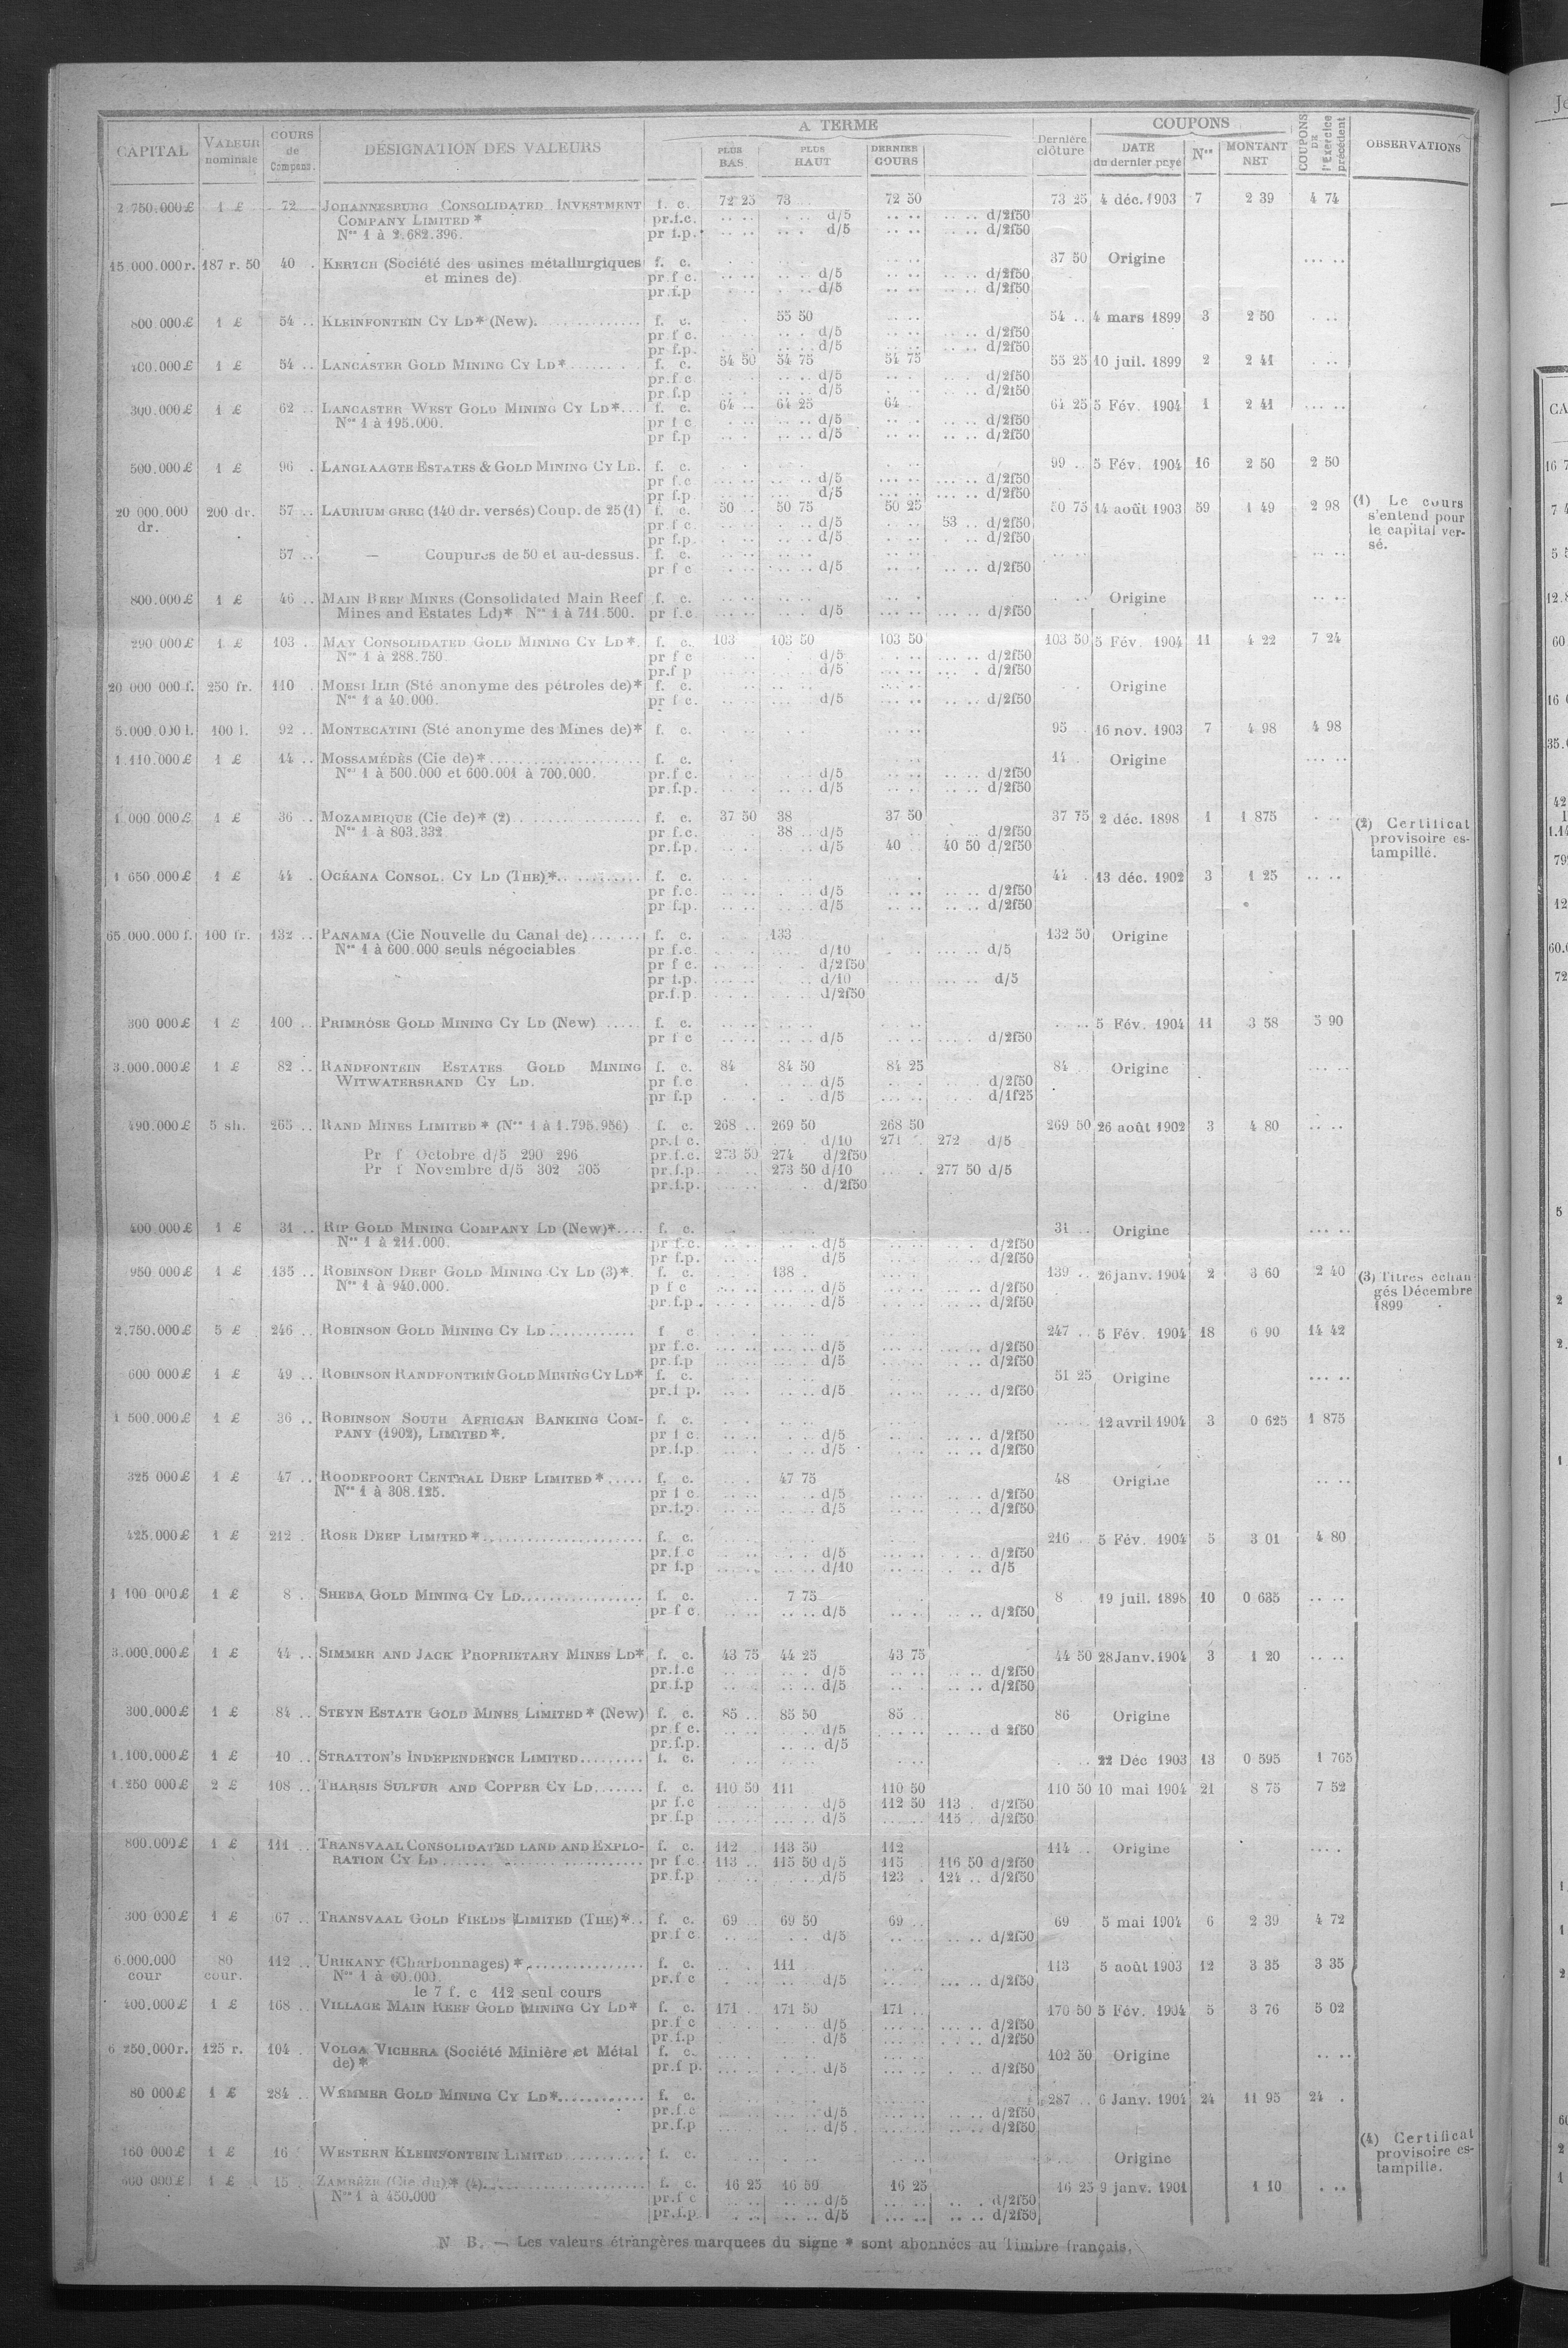 CAPITAL VALEUR nominale COURS de Compens. DÉSIGNATION DES VALEURS A TERME PLUS BAS PLUS HAUT DERNIER COURS Dernière clôture COUPONS DATE du dernier payé Nos MONTANT NET COUPONS DE l'Exercice précédent OBSERVATIONS
2.750.000£ 1 £ 72 JOHANNESBURG CONSOLIDATED INVESTMENT f. c. 72 25 73 72 50 73 25 4 déc. 1903 7 2 39 4 74
COMPANY LIMITED * pr.f.c. d/5 d/2f50
Nos 1 à 2.682.396. pr f.p. d/5 d/2f50
15.000.000r. 187 r. 50 40 KERTCH (Société des usines métallurgiques f. c. 37 50 Origine
et mines de) pr f c. d/5 d/2f50
pr f.p d/5 d/2f50
800.000£ 1 £ 54 KLEINFONTEIN CY LD* (New). f. c. 55 50 54 4 mars 1899 3 2 50
pr f c. d/5 d/2f50
pr f.p. d/5 d/2f50
400.000£ 1 £ 54 LANCASTER GOLD MINING CY LD* f. c. 54 50 54 75 54 75 55 25 10 juil. 1899 2 2 41
pr.f c d/5 d/2f50
pr.f.p d/5 d/2f50
300.000£ 1 £ 62 LANCASTER WEST GOLD MINING CY LD* f. c. 64 64 25 64 64 25 5 Fév. 1904 1 2 41
Nos 1 à 195.000. pr f c d/5 d/2f50
pr f.p d/5 d/2f50
500.000£ 1 £ 96 LANGLAAGTE ESTATES & GOLD MINING CY LD. f. c. 99 5 Fév. 1904 16 2 50 2 50
pr f.c d/5 d/2f50
pr f.p d/5 d/2f50
20 000.000 200 dr. 57 LAURIUM GREC (140 dr. versés) Coup. de 25 (1) f. c. 50 50 75 50 25 50 75 14 août 1903 59 1 49 2 98 (1) Le cours
dr. pr f c. d/5 53 d/2f50 s'entend pour
pr f.p. d/5 d/2f50 le capital ver-
57 — Coupures de 50 et au-dessus. f. c. sé.
pr f c d/5 d/2f50
800.000£ 1 £ 46 MAIN REEF MINES (Consolidated Main Reef f. c. Origine
Mines and Estates Ld)* Nos 1 à 711.500. pr f.c. d/5 d/2f50
290 000£ 1 £ 103 MAY CONSOLIDATED GOLD MINING CY LD*. f. c. 103 103 50 103 50 103 50 5 Fév. 1904 11 4 22 7 24
Nos 1 à 288.750. pr f c d/5 d/2f50
pr.f p d/5 d/2f50
20 000 000 f. 250 fr. 110 MOESI ILIR (Sté anonyme des pétroles de)* f. c. Origine
Nos 1 à 40.000. pr f c. d/5 d/2f50
5.000.000 l. 100 l. 92 MONTECATINI (Sté anonyme des Mines de)* f. c. 95 16 nov. 1903 7 4 98 4 98
1.110.000£ 1 £ 14 MOSSAMÉDÈS (Cie de)* f. c. 14 Origine
Nos 1 à 500.000 et 600.001 à 700.000. pr.f c. d/5 d/2f50
pr.f.p. d/5 d/2f50
1.000 000£ 1 £ 36 MOZAMBIQUE (Cie de)* (2) f. c. 37 50 38 37 50 37 75 2 déc. 1898 1 1 875 (2) Certificat
Nos 1 à 803.332 pr.f.c. 38 d/5 d/2f50 provisoire es-
pr.f.p. d/5 40 40 50 d/2f50 tampillé.
1 650.000£ 1 £ 44 OCÉANA CONSOL. CY LD (THE)* f. c. 44 13 déc. 1902 3 1 25
pr f.c. d/5 d/2f50
pr f.p. d/5 d/2f50
65.000.000 f. 100 fr. 132 PANAMA (Cie Nouvelle du Canal de) f. c. 133 132 50 Origine
Nos 1 à 600.000 seuls négociables pr f.c. d/10 d/5
pr f c. d/2f50
pr f.p. d/10 d/5
pr.f.p d/2f50
300 000£ 1 £ 100 PRIMROSE GOLD MINING CY LD (New) f. c. 5 Fév. 1904 11 3 58 5 90
pr f c d/5 d/2f50
3.000.000£ 1 £ 82 RANDFONTEIN ESTATES GOLD MINING f. c. 84 84 50 84 25 84 Origine
WITWATERSRAND CY LD. pr f.c. d/5 d/2f50
pr f.p d/5 d/1f25
490.000£ 5 sh. 265 RAND MINES LIMITED * (Nos 1 à 1.795.956) f. c. 268 269 50 268 50 269 50 26 août 1902 3 4 80
pr.f c. d/10 271 272 d/5
Pr f Octobre d/5 290 296 pr.f.c. 273 50 274 d/2f50
Pr f Novembre d/5 302 305 pr.f.p. 273 50 d/10 277 50 d/5
pr.f.p. d/2f50
400.000£ 1 £ 31 RIP GOLD MINING COMPANY LD (New)* f. c. 31 Origine
Nos 1 à 211.000. pr f.c. d/5 d/2f50
pr f.p. d/5 d/2f50
950 000£ 1 £ 135 ROBINSON DEEP GOLD MINING CY LD (3)* f. c. 138 139 26 janv. 1904 2 3 60 2 40 (3) Titres échan
Nos 1 à 940.000. p f c d/5 d/2f50 gés Décembre
pr.f.p. d/5 d/2f50 1899
2.750.000£ 5 £ 246 ROBINSON GOLD MINING CY LD f c 247 5 Fév. 1904 18 6 90 14 42
pr f.c. d/5 d/2f50
pr.f.p d/5 d/2f50
600 000£ 1 £ 49 ROBINSON RANDFONTEIN GOLD MINING CY LD* f. c. 51 25 Origine
pr.f p. d/5 d/2f50
1 500.000£ 1 £ 36 ROBINSON SOUTH AFRICAN BANKING COM- f. c. 12 avril 1904 3 0 625 1 875
PANY (1902), LIMITED *. pr f c. d/5 d/2f50
pr.f.p d/5 d/2f50
325 000£ 1 £ 47 ROODEPOORT CENTRAL DEEP LIMITED * f. c. 47 75 48 Origine
Nos 1 à 308.125. pr f c d/5 d/2f50
pr.f.p. d/5 d/2f50
425.000£ 1 £ 212 ROSE DEEP LIMITED * f. c. 216 5 Fév. 1904 5 3 01 4 80
pr.f c d/5 d/2f50
pr f.p d/10 d/5
1 100 000£ 1 £ 8 SHEBA GOLD MINING CY LD. f. c. 7 75 8 19 juil. 1898 10 0 635
pr f c. d/5 d/2f50
3.000.000£ 1 £ 44 SIMMER AND JACK PROPRIETARY MINES LD* f. c. 43 75 44 25 43 75 44 50 28 Janv. 1904 3 1 20
pr.f.c d/5 d/2f50
pr f.p d/5 d/2f50
300.000£ 1 £ 84 STEYN ESTATE GOLD MINES LIMITED * (New) f. c. 85 85 50 85 86 Origine
pr f c. d/5 d 2f50
pr.f.p. d/5
1.100.000£ 1 £ 10 STRATTON'S INDEPENDENCE LIMITED f. c. 22 Déc 1903 13 0 595 1 765
1.250 000£ 2 £ 108 THARSIS SULFUR AND COPPER CY LD f. c. 110 50 111 110 50 110 50 10 mai 1904 21 8 75 7 52
pr f.c d/5 112 50 113 d/2f50
pr f.p d/5 115 d/2f50
800.000£ 1 £ 111 TRANSVAAL CONSOLIDATED LAND AND EXPLO- f. c. 112 113 50 112 114 Origine
RATION CY LD pr f.c. 113 115 50 d/5 115 116 50 d/2f50
pr f.p d/5 123 124 d/2f50
300 000£ 1 £ 67 TRANSVAAL GOLD FIELDS LIMITED (THE)* f. c. 69 69 50 69 69 5 mai 1904 6 2 39 4 72
pr.f c d/5 d/2f50
6.000.000 80 112 URIKANY (Charbonnages) * f. c. 111 113 5 août 1903 12 3 35 3 35
cour cour. Nos 1 à 60.000. pr.f c d/5 d/2f50
le 7 f. c 112 seul cours
400.000£ 1 £ 168 VILLAGE MAIN REEF GOLD MINING CY LD* f. c. 171 171 50 171 170 50 5 Fév. 1904 5 3 76 5 02
pr.f c d/5 d/2f50
pr.f.p d/5 d/2f50
6 250.000r. 125 r. 104 VOLGA VICHERA (Société Minière et Métal f. c. 102 50 Origine
de) * pr.f p. d/5 d/2f50
80 000£ 1 £ 284 WEMMER GOLD MINING CY LD* f. c. 287 6 Janv. 1904 24 11 95 24
pr.f.c d/5 d/2f50
pr.f.p d/5 d/2f50
160 000£ 1 £ 16 WESTERN KLEINFONTEIN LIMITED f. c. Origine (4) Certificat
600 000£ 1 £ 15 ZAMBÈZE (Cie du)* (4) f. c. 16 25 16 50 16 25 16 25 9 janv. 1901 1 10 provisoire es-
Nos 1 à 450.000 pr.f c d/5 d/2f50 tampille.
pr.f.p d/5 d/2f50
N B. — Les valeurs étrangères marquees du signe * sont abonnées au Timbre français.